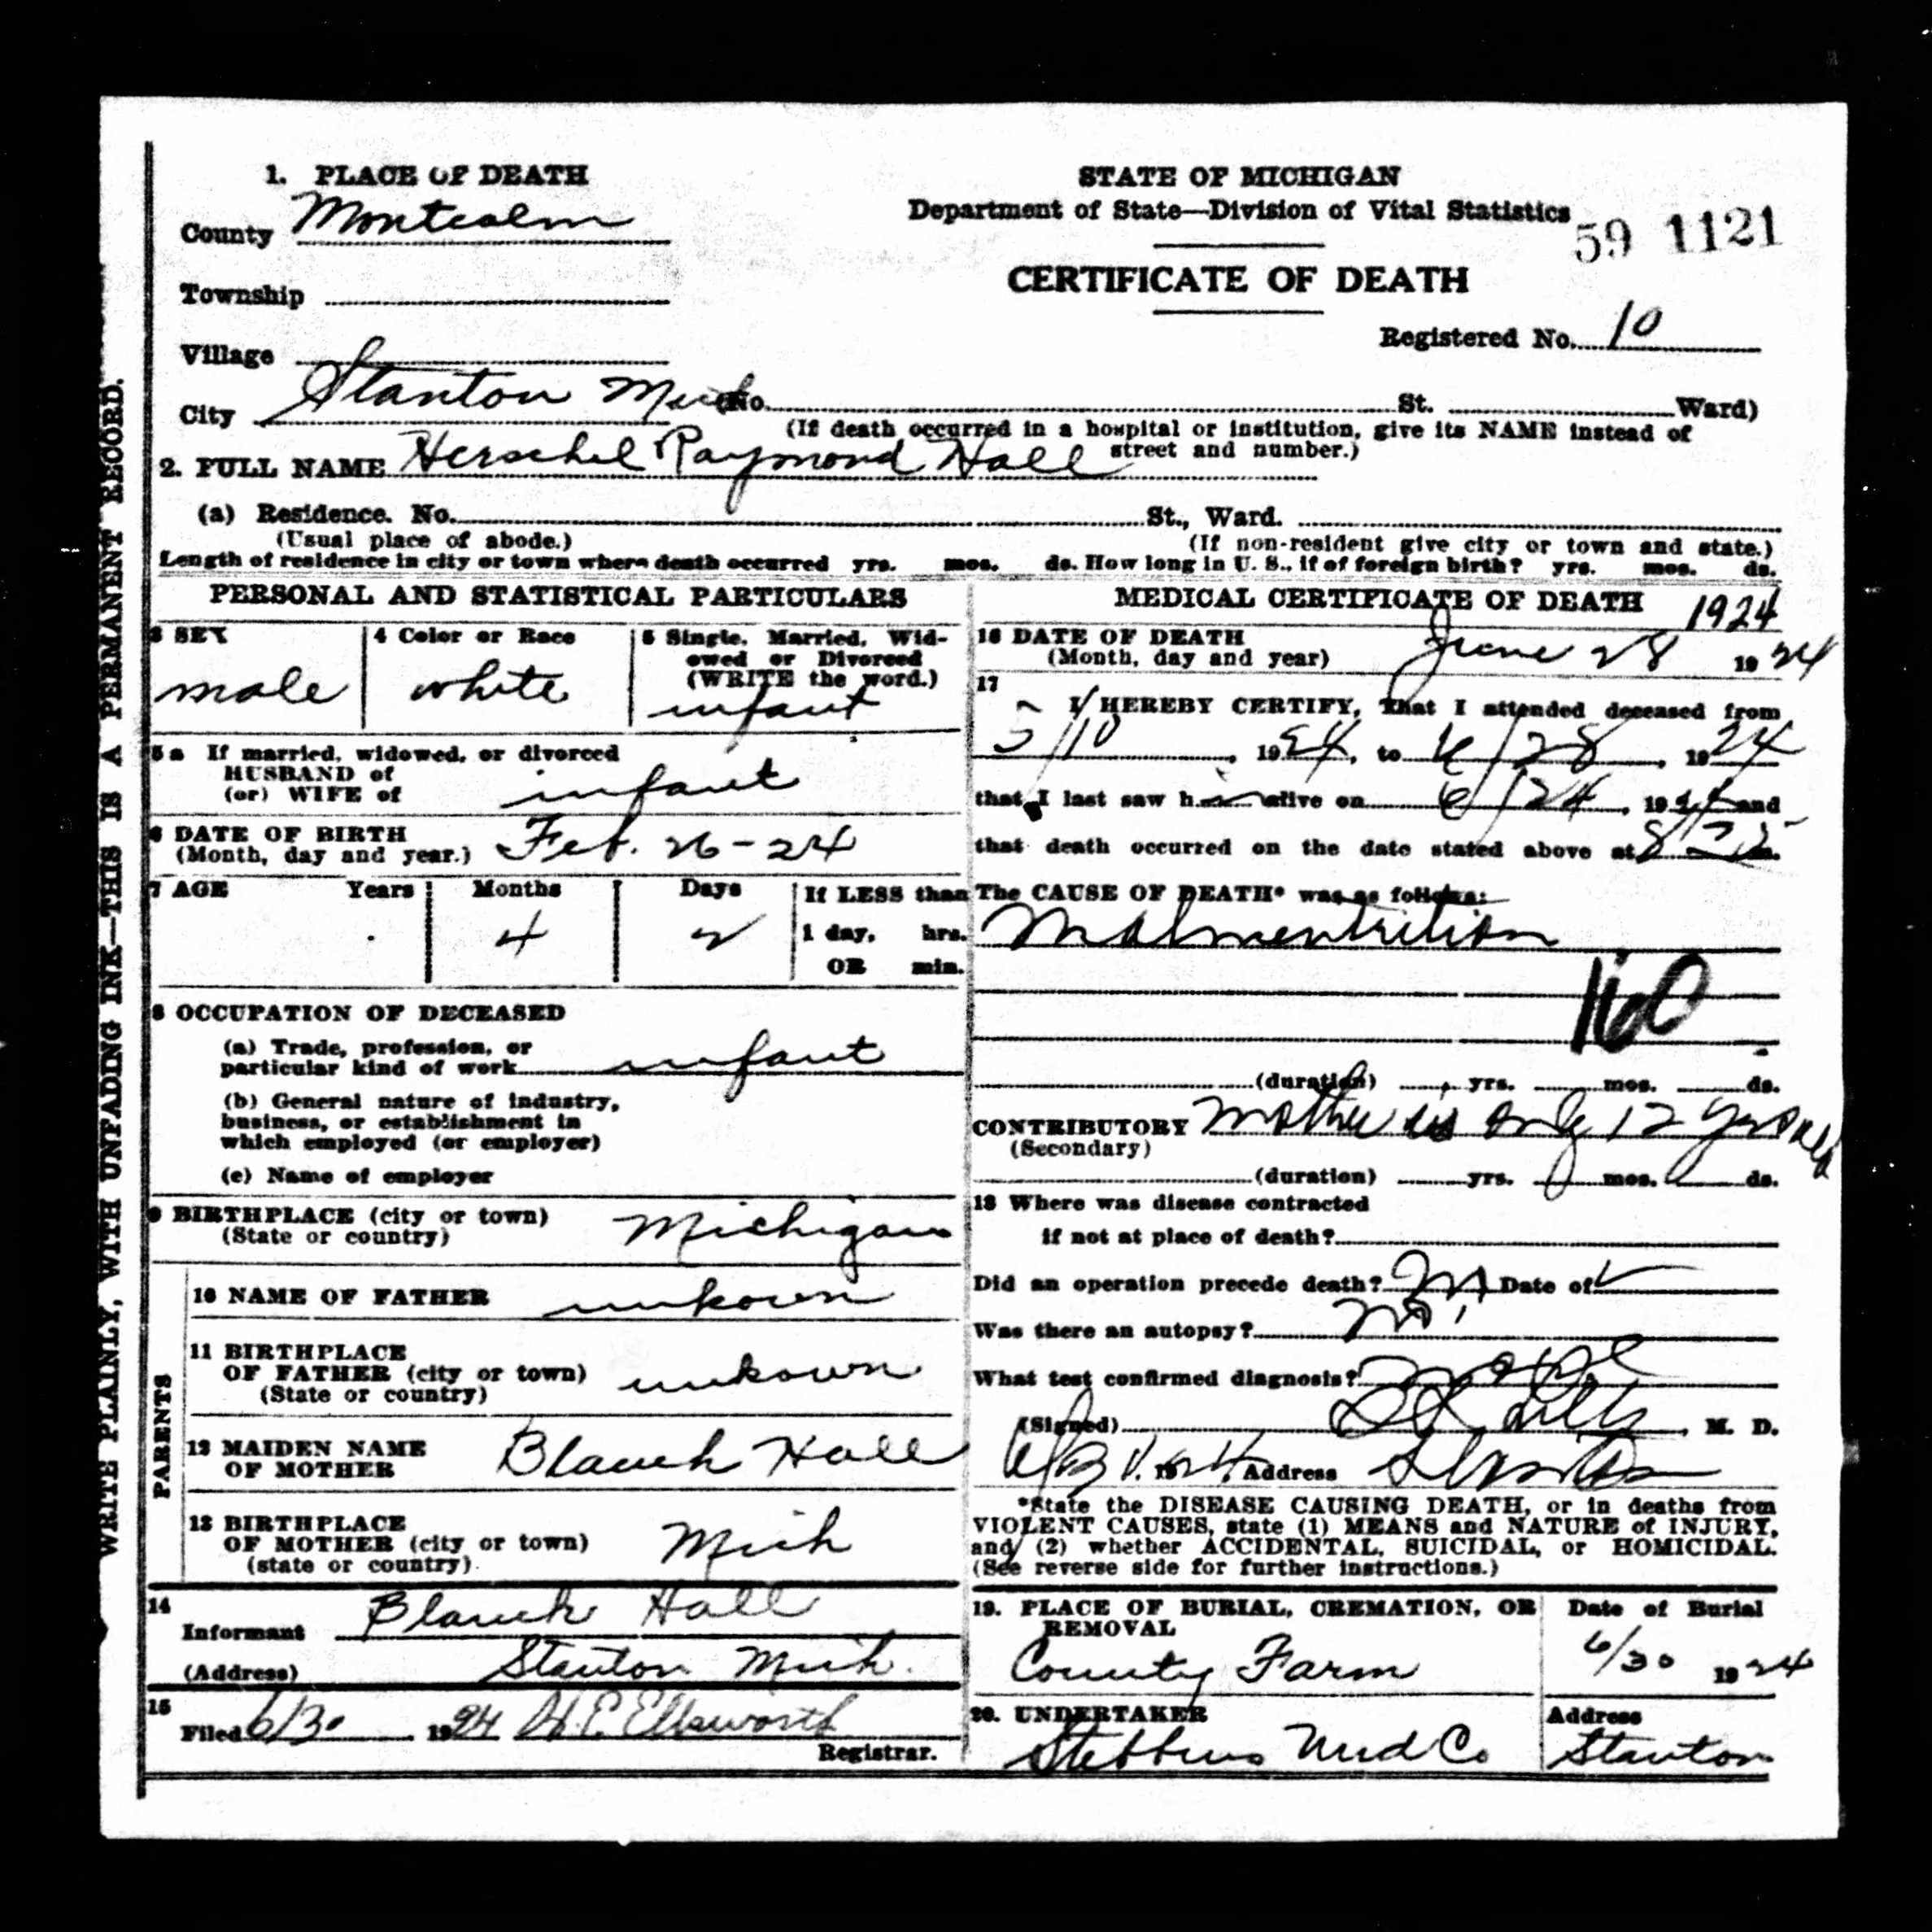 1. PLACE OF DEATH
County Montcalm
Township
Village
City Stanton Mich
STATE OF MICHIGAN
Department of State—Division of Vital Statistics
59 1121
CERTIFICATE OF DEATH
Registered No. 10
(No. St. Ward)
(If death occurred in a hospital or institution, give its NAME instead of
street and number.)
2. FULL NAME Herschel Raymond Hall
(a) Residence. No. St., Ward.
(Usual place of abode.) (If non-resident give city or town and state.)
Length of residence in city or town where death occurred yrs. mos. ds. How long in U. S., if of foreign birth? yrs. mos. ds.
PERSONAL AND STATISTICAL PARTICULARS
3 SEX
male
4 Color or Race
white
5 Single, Married, Wid-
owed or Divorced
(WRITE the word.)
infant
5a If married, widowed, or divorced
HUSBAND of
(or) WIFE of infant
6 DATE OF BIRTH
(Month, day and year.) Feb. 26-24
7 AGE Years Months Days If LESS than
4 2 1 day, hrs.
OR min.
8 OCCUPATION OF DECEASED
(a) Trade, profession, or
particular kind of work infant
(b) General nature of industry,
business, or establishment in
which employed (or employer)
(c) Name of employer
9 BIRTHPLACE (city or town)
(State or country) Michigan
PARENTS
10 NAME OF FATHER unkown
11 BIRTHPLACE
OF FATHER (city or town) unkown
(State or country)
12 MAIDEN NAME
OF MOTHER Blanch Hall
13 BIRTHPLACE
OF MOTHER (city or town) Mich
(state or country)
14
Informant Blanch Hall
(Address) Stanton Mich.
15
Filed 6/30 1924 H. E. Ellsworth
Registrar.
MEDICAL CERTIFICATE OF DEATH 1924
16 DATE OF DEATH
(Month, day and year) June 28 1924
17
I HEREBY CERTIFY, that I attended deceased from
5/10, 1924, to 6/28, 1924
that I last saw him alive on 6/24, 1924 and
that death occurred on the date stated above at 8 m.
The CAUSE OF DEATH* was as follows:
Malnentrition
160
(duration) yrs. mos. ds.
CONTRIBUTORY Mother is only 12 yrs old
(Secondary)
(duration) yrs. mos. ds.
18 Where was disease contracted
if not at place of death?
Did an operation precede death? No Date of
Was there an autopsy? No
What test confirmed diagnosis?
(Signed) , M. D.
1924. Address Stanton
*State the DISEASE CAUSING DEATH, or in deaths from
VIOLENT CAUSES, state (1) MEANS and NATURE of INJURY,
and (2) whether ACCIDENTAL, SUICIDAL, or HOMICIDAL.
(See reverse side for further instructions.)
19. PLACE OF BURIAL, CREMATION, OR
REMOVAL
County Farm
Date of Burial
6/30 1924
20. UNDERTAKER
Stebbins Und Co
Address
Stanton
WRITE PLAINLY, WITH UNFADING INK—THIS IS A PERMANENT RECORD.